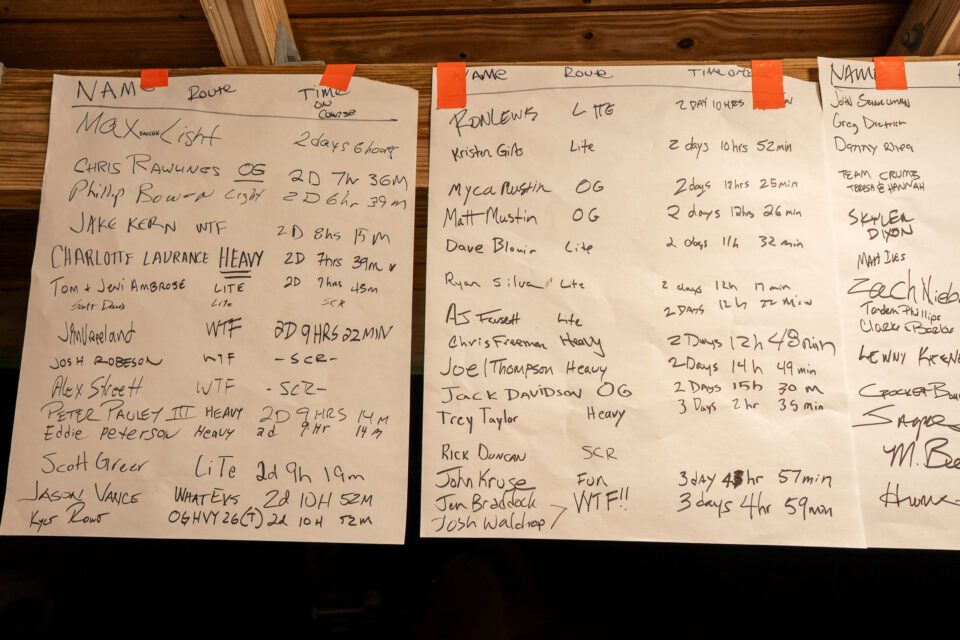 NAME Route TIME ON COURSE
Max Light 2days 6hours
CHRIS RAWLINGS OG 2D 7hr 36M
Phillip Bowen Light 2D 6hr 39m
JAKE KERN WTF 2D 8hs 15M
CHARLOTTE LAURANCE HEAVY 2D 7hrs 39m
Tom & Jeni AMBROSE LITE 2D 7has 45m
Scott Davis Lite SCR
WTF 2D 9HRS 22MIN
JOSH ROBESON WTF -SCR-
Alex Streett WTF -SCR-
PETER PAULEY III HEAVY 2D 9HRS 14M
Eddie Peterson HEAVY 2d 9Hr 14M
Scott Greer LiTe 2d 9h 19m
JASON VANCE WHATEVS 2d 10H 52M
OGHVY26(T) 2d 10H 52M
NAME Route Time
RONLEWIS LITE 2 DAY 10HRS
Kristin Gifts Lite 2 days 10hrs 52min
Myca Mustin OG 2days 12hrs 25min
Matt Mustin OG 2 days 12hrs 26min
Dave Blouir Lite 2 days 11h 32min
Ryan Silva Lite 2 days 12h 17min
AJ Fausett Lite 2 DAYS 12h 22Min
Chris Freeman Heavy 2 Days 12h 48min
Joel Thompson Heavy 2 Days 14h 49min
JACK DAVIDSON OG 2 Days 15h 30m
Trey Taylor Heavy 3 Days 2hr 35min
RICK DUNCAN SCR
John Kruse Fun 3 day hr 57min
Jen Braddock WTF!! 3days 4hr 59min
Josh Waldrop
NAME
JOHN
Greg
Danny Rhea
TEAM CRUMB
TERESA & HANNAH
SKYLER
DIXON
Matt Ives
Zach
Phillips
Clark
LENNY
M.